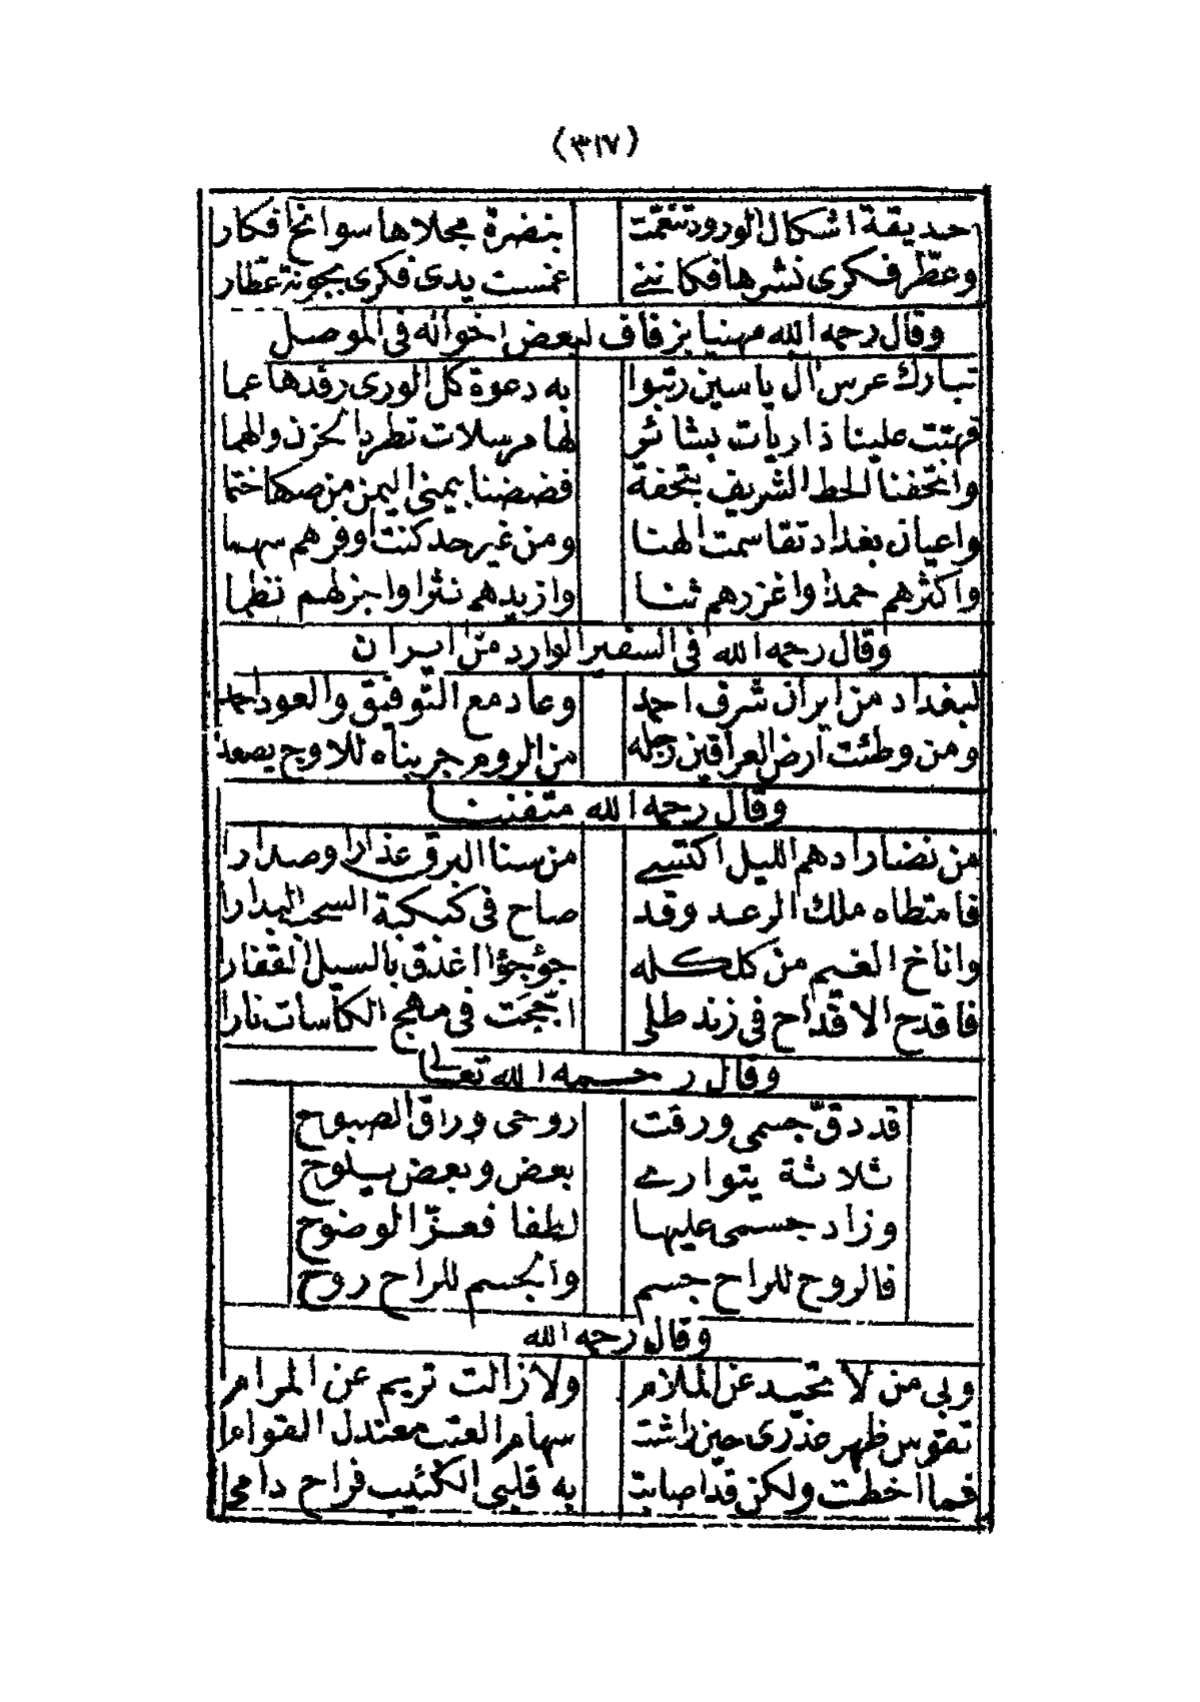 (٣١٧)
حديقة اشكال الورود تنعمت بنضرة مجلاها سوانح افكار
وعطّر فكرى نشرها فكاننى غمست يدى فكرى بجونة عطّار
وقال رحمه الله مهنيا بزفاف لبعض اخوانه فى الموصل
تبارك عرس ال ياسين رتبوا به دعوة كل الورى رفدها عما
فهبت علينا ذاريات بشائر لها مرسلات تطرد الحزن والهما
واتحفنا الحظ الشريف بتحفة فضضنا بيمنى اليمن من صكها ختما
واعيان بغداد تقاسمت الهنا ومن غير حد كنت اوفرهم سهما
واكثرهم حمدا واغزرهم ثنا وازيدهم نثرا واجزلهم نظما
وقال رحمه الله فى السفير الوارد من ايران
لبغداد من ايران شرف احمد وعاد مع التوفيق والعود احمد
ومن وطئت ارض العراقين رجله من الروم جريناه للاوج يصعد
وقال رحمه الله متفننا
من نضار ادهم الليل اكتسى من سنا البرق عذارا وصدارا
فامتطاه ملك الرعد وقد صاح فى كبكبة السحب البدارا
واناخ الغيم من كلكله جؤجؤا اغذق بالسيل القفارا
فاقدح الاقداح فى زند طلى اججت فى مهج الكأسات نارا
وقال رحمه الله تعالى
قد دقّ جسمى ورقت روحى وراق الصبوح
ثلاثة يتوارى بعض وبعض يلوح
وزاد جسمى عليها لطفا فعزّ الوضوح
فالروح للراح جسم والجسم للراح روح
وقال رحمه الله
وبى من لا تحيد عن الملام ولا زالت تريم عن المرام
تقوس ظهر حذرى حين راشت سهام العتب معتدل القوام
فما اخطت ولكن قد اصابت به قلبى الكئيب فراح دامى